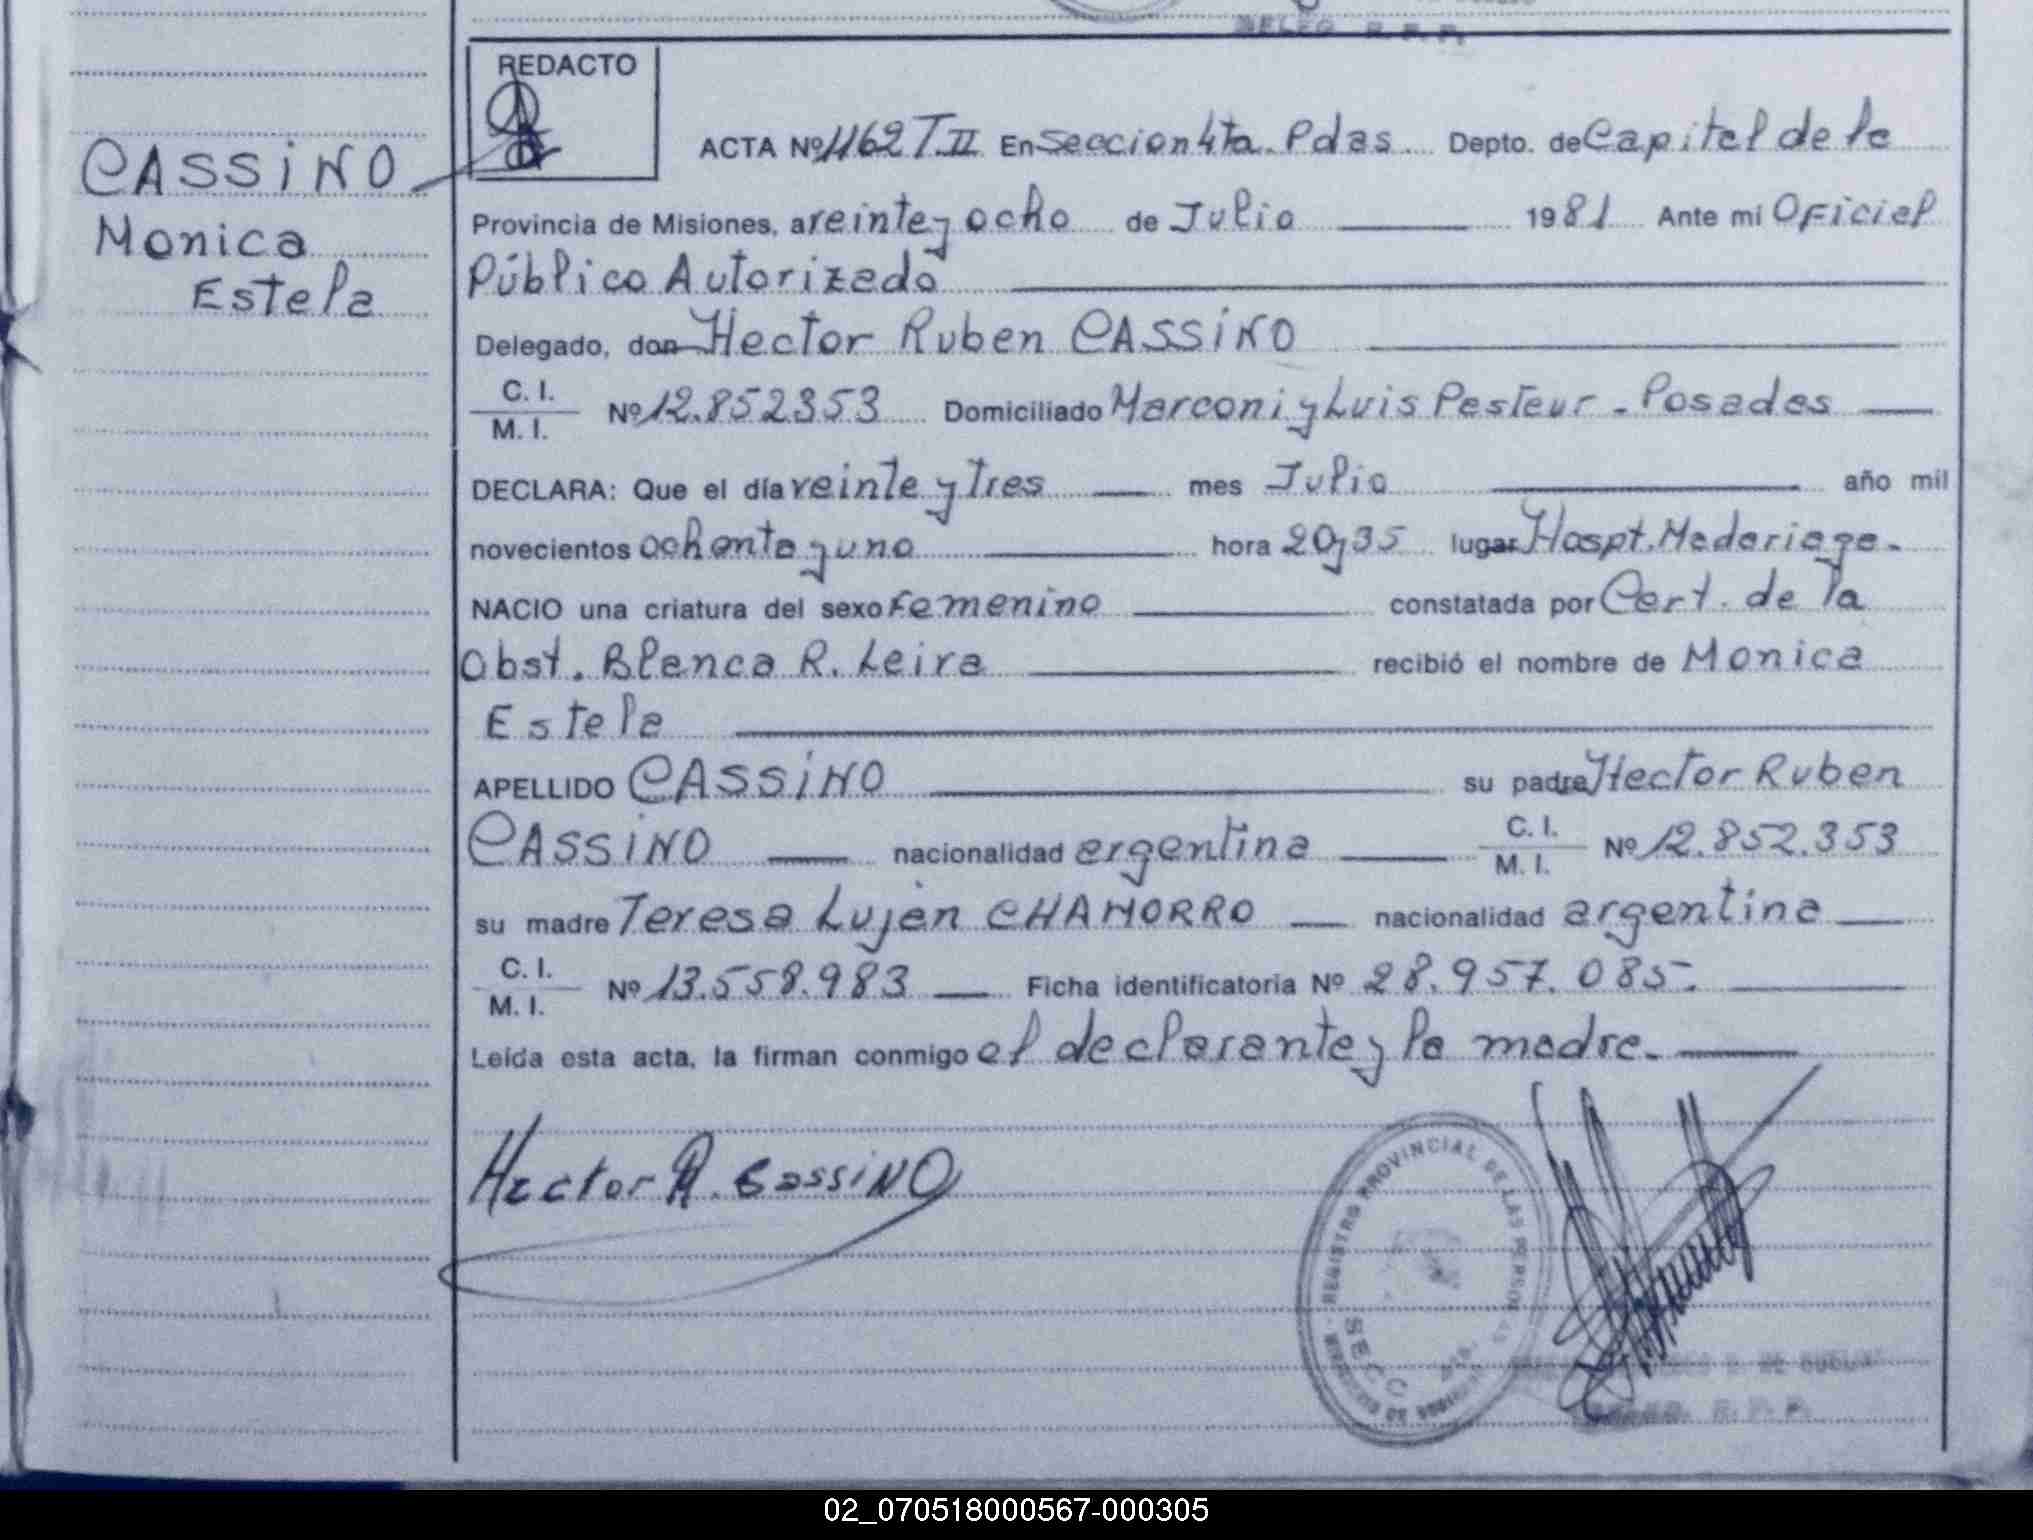 DELEG R. P. P.
REDACTO
ACTA Nº 1162 T. II En Seccion 4ta. Pdas Depto. de Capital de la
CASSiNO
Monica
Estela
Provincia de Misiones, a veinte y ocho de Julio 1981 Ante mi Oficial
Público Autorizado
Delegado, don Hector Ruben CASSiNO
C. I.
M. I. Nº 12.852353 Domiciliado Marconi y Luis Pasteur - Posadas
DECLARA: Que el día veinte y tres mes Julio año mil
novecientos ochenta y uno hora 20,35 lugar Hospt. Madariaga.
NACIO una criatura del sexo Femenino constatada por Cert. de la
Obst. Blanca R. Leira recibió el nombre de Monica
Estela
APELLIDO CASSiNO su padre Hector Ruben
CASSiNO nacionalidad argentina C. I.
M. I. Nº 12.852.353
su madre Teresa Luján CHAMORRO nacionalidad argentina
C. I.
M. I. Nº 13.558.983 Ficha identificatoria Nº 28.957.085.
Leída esta acta, la firman conmigo el declarante y la madre.
Hector R. Cassino
REGISTRO PROVINCIAL DE LAS PERSONAS
SECC
R. P. P.
02_070518000567-000305